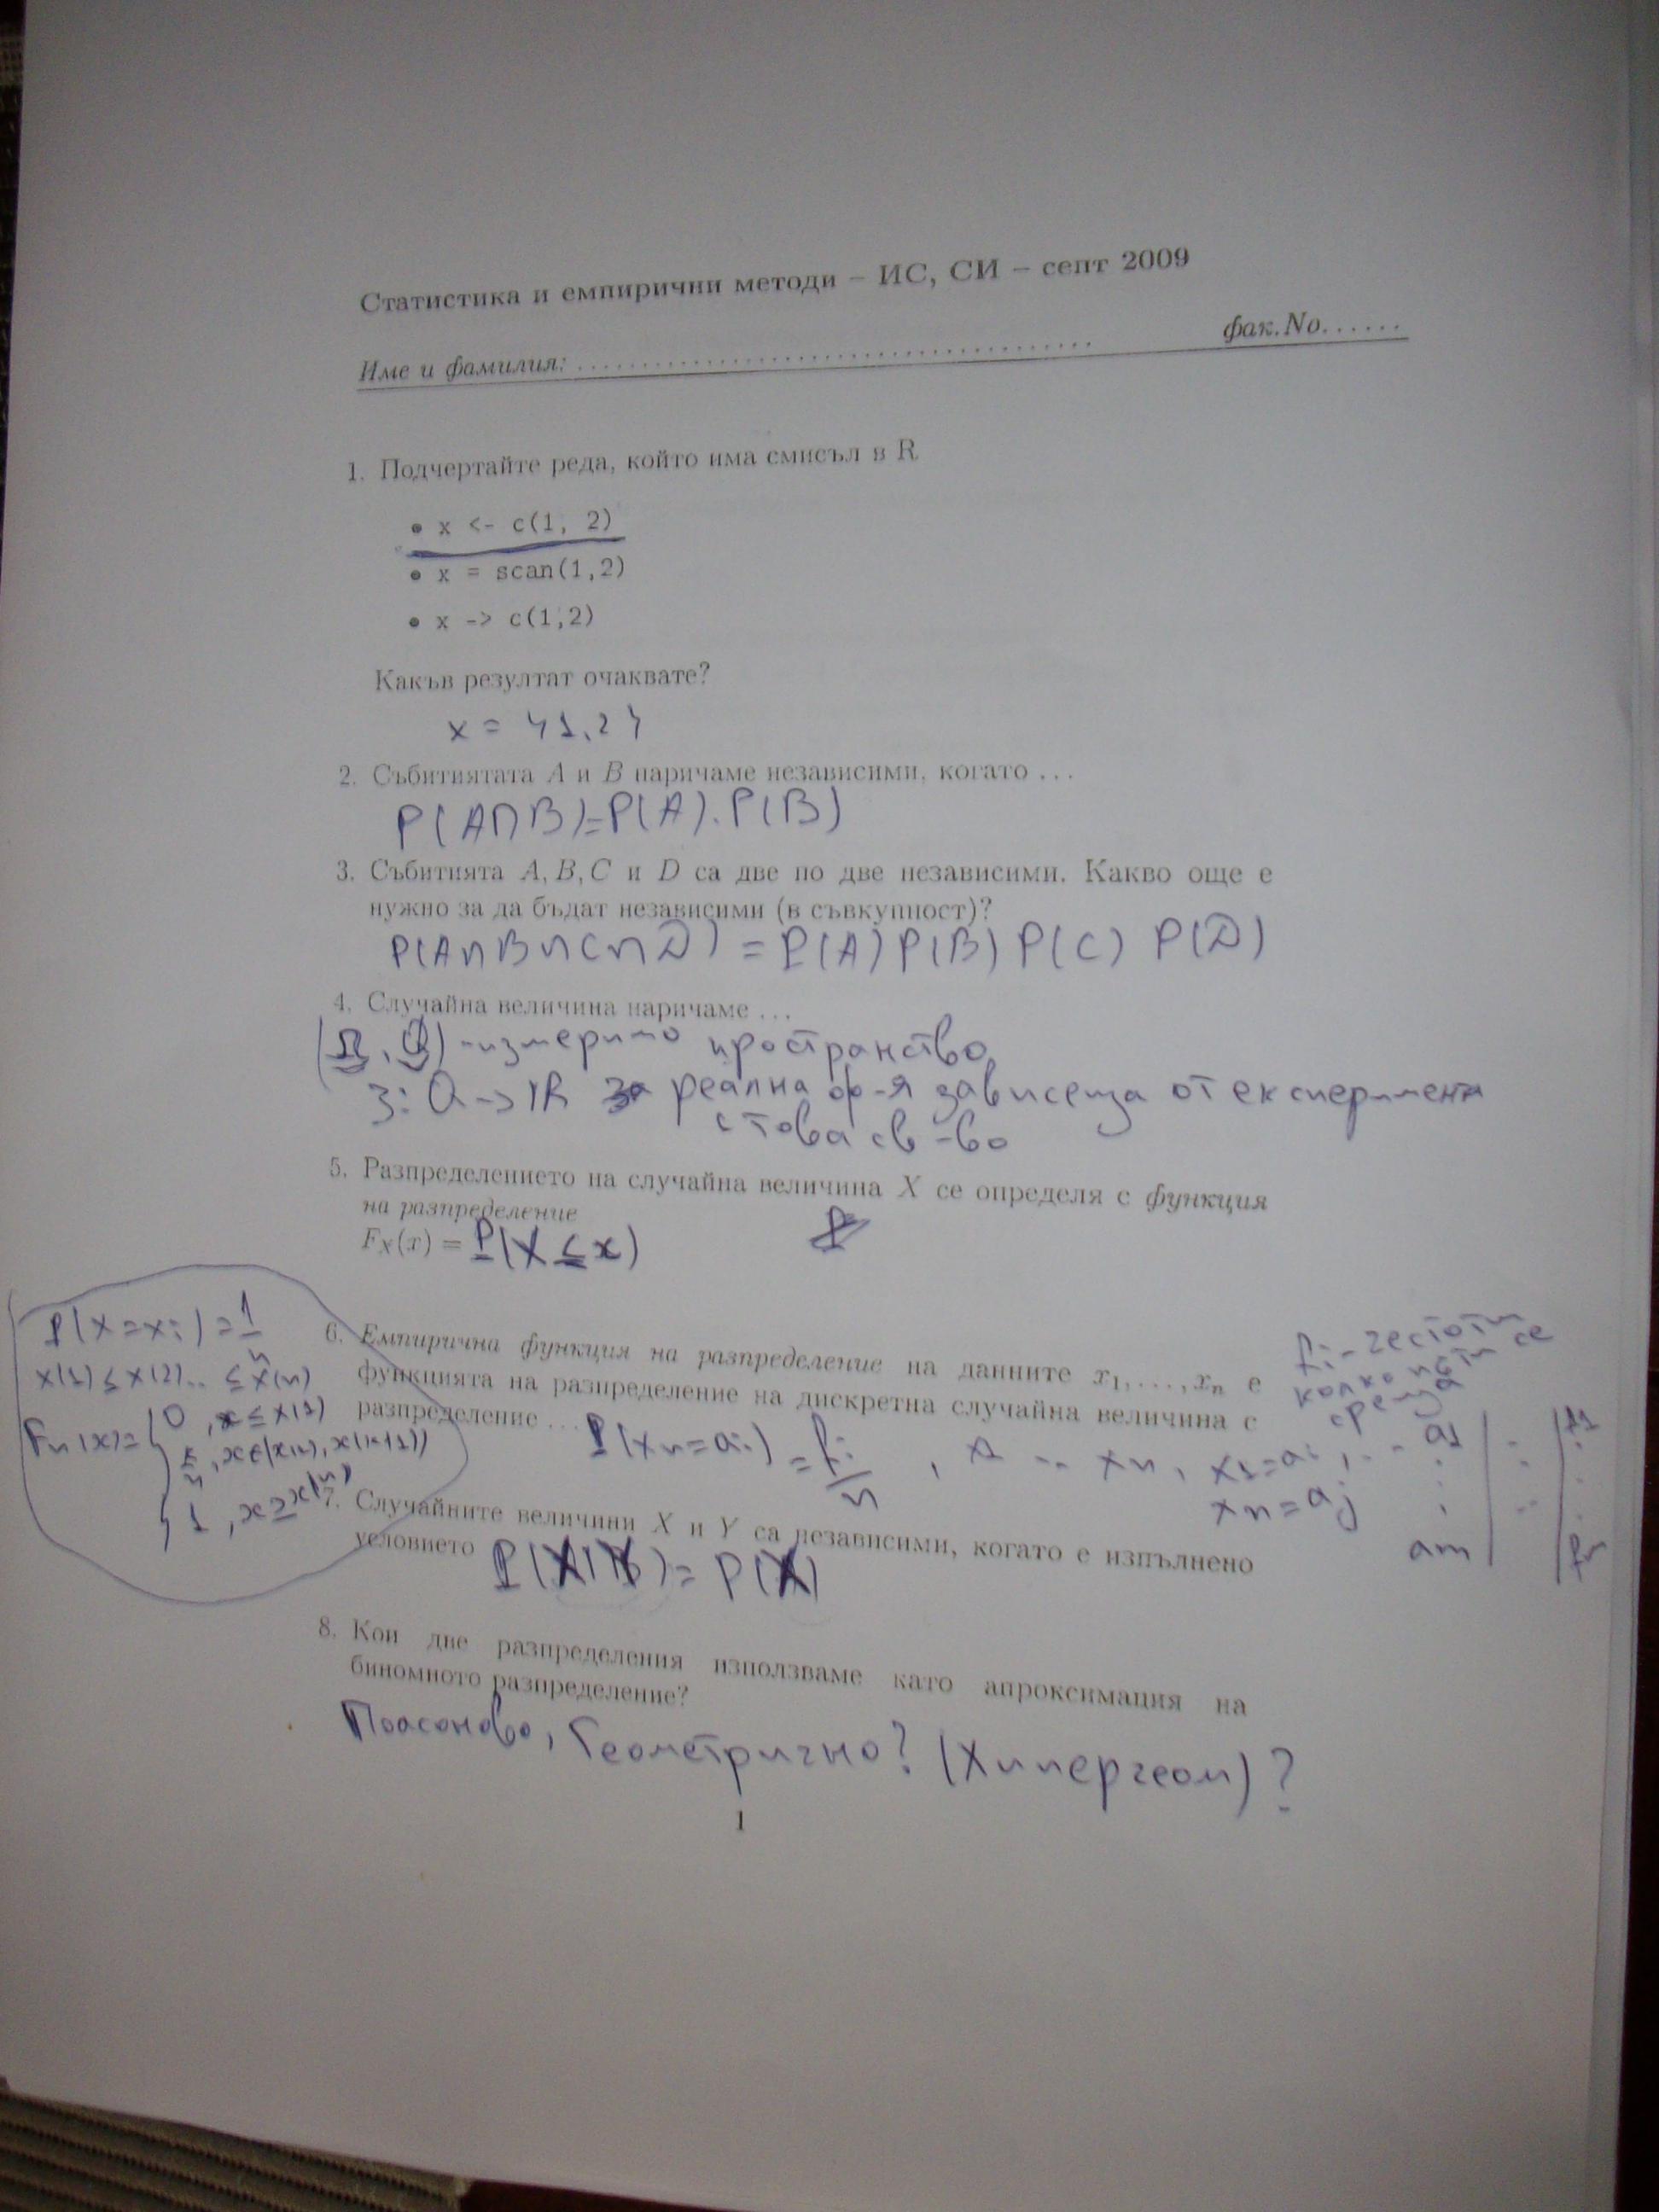 Статистика и емпирични методи – ИС, СИ – септ 2009
Име и фамилия: ........................................ фак.No......
1. Подчертайте реда, който има смисъл в R
• x <- c(1, 2)
• x = scan(1,2)
• x -> c(1,2)
Какъв резултат очаквате?
x = {1,2}
2. Събитиятата A и B наричаме независими, когато ...
P(A∩B)=P(A).P(B)
3. Събитията A, B, C и D са две по две независими. Какво още е
нужно за да бъдат независими (в съвкупност)?
P(A∩B∩C∩D) = P(A) P(B) P(C) P(D)
4. Случайна величина наричаме ...
-измеримо пространство
за реална ф-я зависеща от експеримента
с това св-во
5. Разпределението на случайна величина X се определя с функция
на разпределение
F_X(x) = P(X ≤ x)
P(X=xi)=1/n
x(1)≤x(2)... ≤x(n)
Fn(x)={0, x≤x(1)
k/n, x∈(x(k),x(k+1))
1, x≥x(n)
6. Емпирична функция на разпределение на данните x₁, ..., xₙ е
функцията на разпределение на дискретна случайна величина с
разпределение ... P(xn=ai) = fi/n
fi-честоти
колко пъти се
среща
xn, x1=ai, ...
xn=aj
a1
am
7. Случайните величини X и Y са независими, когато е изпълнено
условието P(X|Y)=P(X)
8. Кои две разпределения използваме като апроксимация на
биномното разпределение?
Поасоново, Геометрично? (Хипергеом)?
1